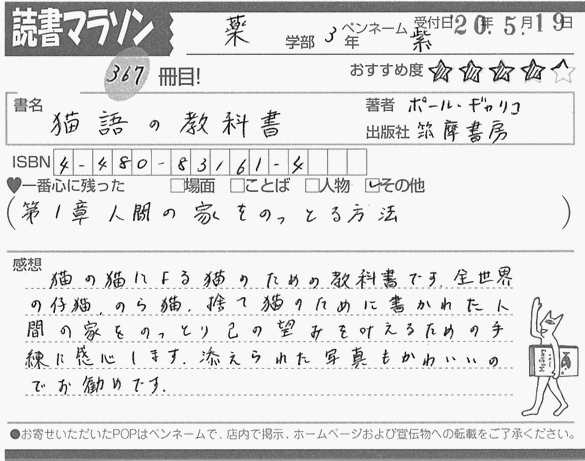 読書マラソン
薬 学部 3年 ペンネーム 紫 受付日 20年5月19日
367冊目!
おすすめ度 ★★★★☆
書名 猫語の教科書
著者 ポール・ギャリコ
出版社 筑摩書房
ISBN 4-480-83161-4
♥一番心に残った □場面 □ことば □人物 ☑その他
(第1章 人間の家をのっとる方法)
感想
猫の猫による猫のための教科書です。全世界
の仔猫、のら猫、捨て猫のために書かれた人
間の家をのっとり己の望みを叶えるための手
練に感心します。添えられた写真もかわいいの
でお勧めです。
●お寄せいただいたPOPはペンネームで、店内で掲示、ホームページおよび宣伝物への転載をご了承ください。